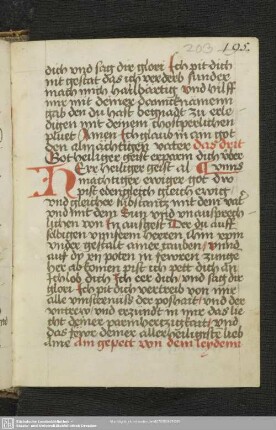 203 195.
dich vnd sag dir glori Ich pit dich
mit gestat das ich verderb sunder
mach mich hailbartig vnd hilff
mir mit deiner
gab den du hast begnadt zu erle
digen mit deinem chostperleichen
pluet Amen Ich glaub in ain got
den almachtigen vater das drit
Got heiliger geist erparm dich vber
HErr heiliger geist al vnns
machtiger ewiger got dw
pist ebengleich gleich ewig
vnd gleicher substantz mit dem vat
vnd mit dem Sun vnd vnaussprech
lichen von in ausgeist Der du auf
selbigen vnsern herren ihm vom
vnder gestalt ainer tauben vnnd
auf dy in fewren zunge
her ab komen pist ich pett dich an
Ich lob dich Ich eer dich vnd sag dir
glori Ich pit dich vertreib von mir
alle vinsternuss der poshait vnd der
vntrew vnd erzundt in mir das lie
cht deiner parmhertzigkait vnd
das fewr deiner allerheiligisten lieb
Ame Ain gepett von dem leydenn